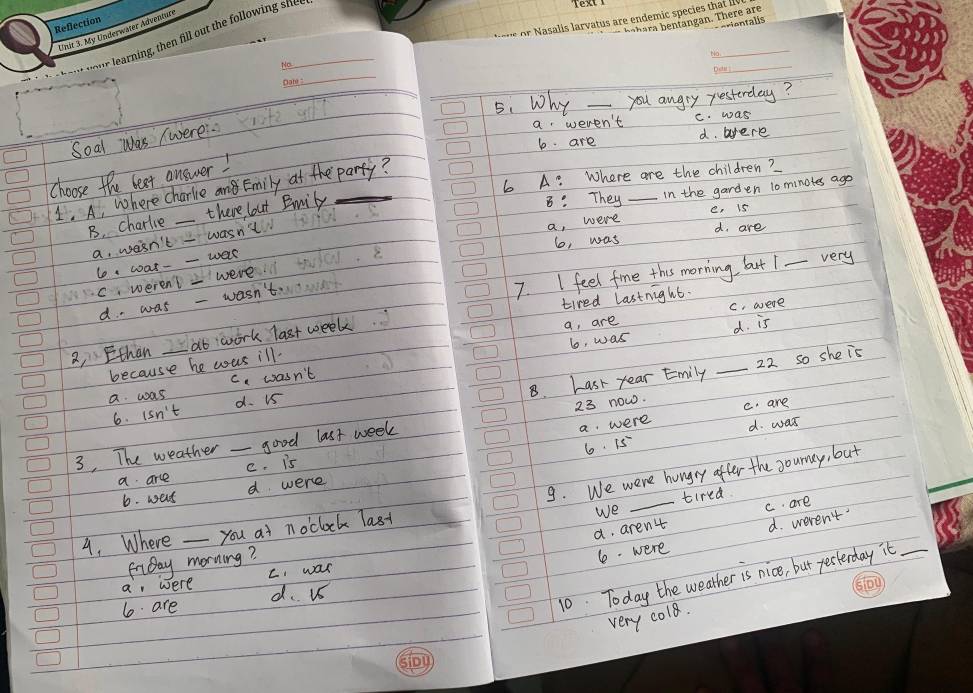 Reflection
Unit 3. My Underwater Adventure
your learning, then fill out the following sheet.
Text 1
or Nasalis larvatus are endemic species that live
bentangan. There are
orientalis
No.
Date :
Soal Was / were :-
Choose the best answer !
1. A, Where Charlie and Emily at the party?
B. Charlie — there, but Emily
a. wasn't — wasn't
b. was — was
c. weren't — were
d. was — wasn't.
2, Ethan — at work last week
because he was ill.
a. was c. wasn't
b. isn't d. is
3, The weather — good last week
a. are c. is
b. was d. were
4, Where — you at 11 o'clock last
friday morning?
a. were c. was
b. are d. is
SIDU
No.
Date :
5. Why — you angry yesterday?
a. weren't c. was
b. are d. were
6 A: Where are the children?
B: They — in the garden 10 minutes ago
a, were c, is
b, was d. are
7. I feel fine this morning, but I — very
tired lastnight.
a, are c, were
b, was d. is
8. Last year Emily — 22 so she is
23 now.
a. were c. are
b. is d. was
9. We were hungry after the journey, but
we — tired.
a. aren't c. are
b. were d. weren't.
10. Today the weather is nice, but yesterday it —
very cold.
SIDU